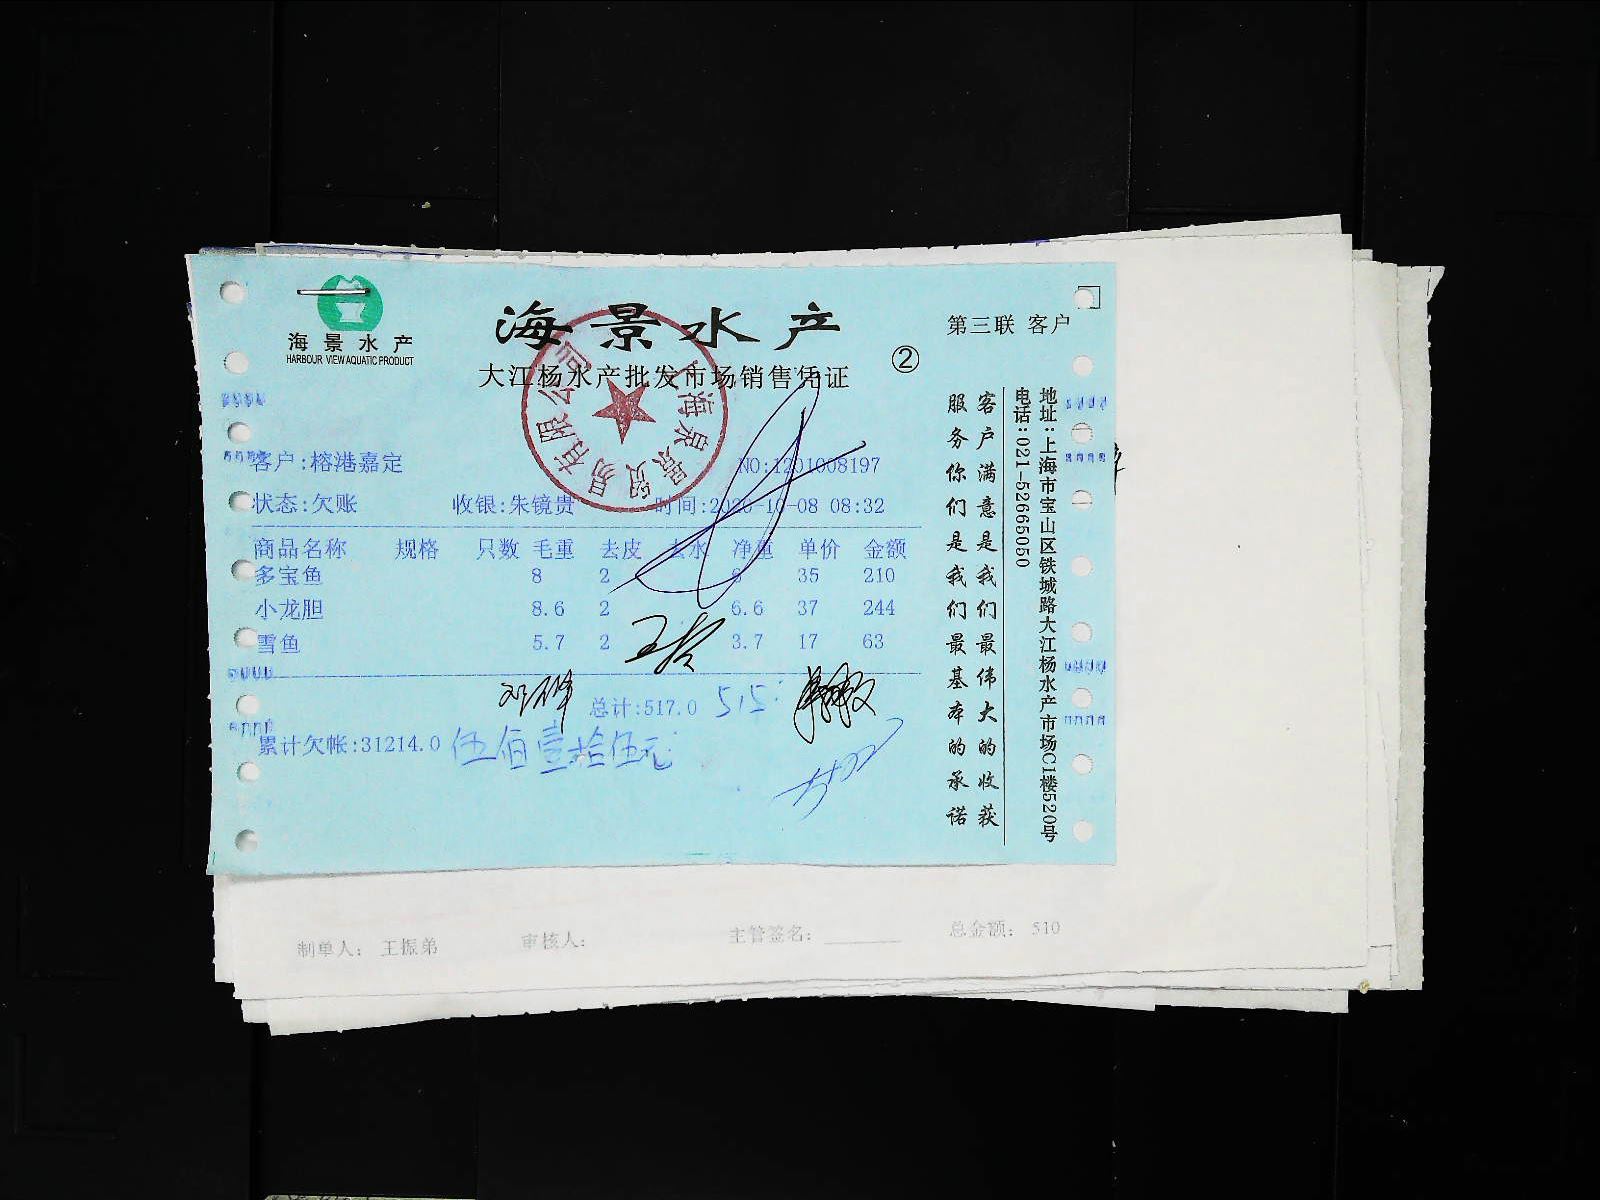 海景水产
HARBOUR VIEW AQUATIC PRODUCT
海景水产
大江杨水产批发市场销售凭证
②
第三联 客户
客户:榕港嘉定 NO:1201008197
状态:欠账 收银:朱镜贵 时间:2020-10-08 08:32
商品名称 规格 只数 毛重 去皮 去水 净重 单价 金额
多宝鱼 8 2 6 35 210
小龙胆 8.6 2 6.6 37 244
雪鱼 5.7 2 3.7 17 63
总计:517.0 515
累计欠帐:31214.0 伍佰壹拾伍元
客户满意是我们最伟大的收获
服务你们是我们最基本的承诺
地址:上海市宝山区铁城路大江杨水产市场C1楼520号
电话:021-52665050
制单人: 王振弟 审核人: 主管签名: 总金额: 510